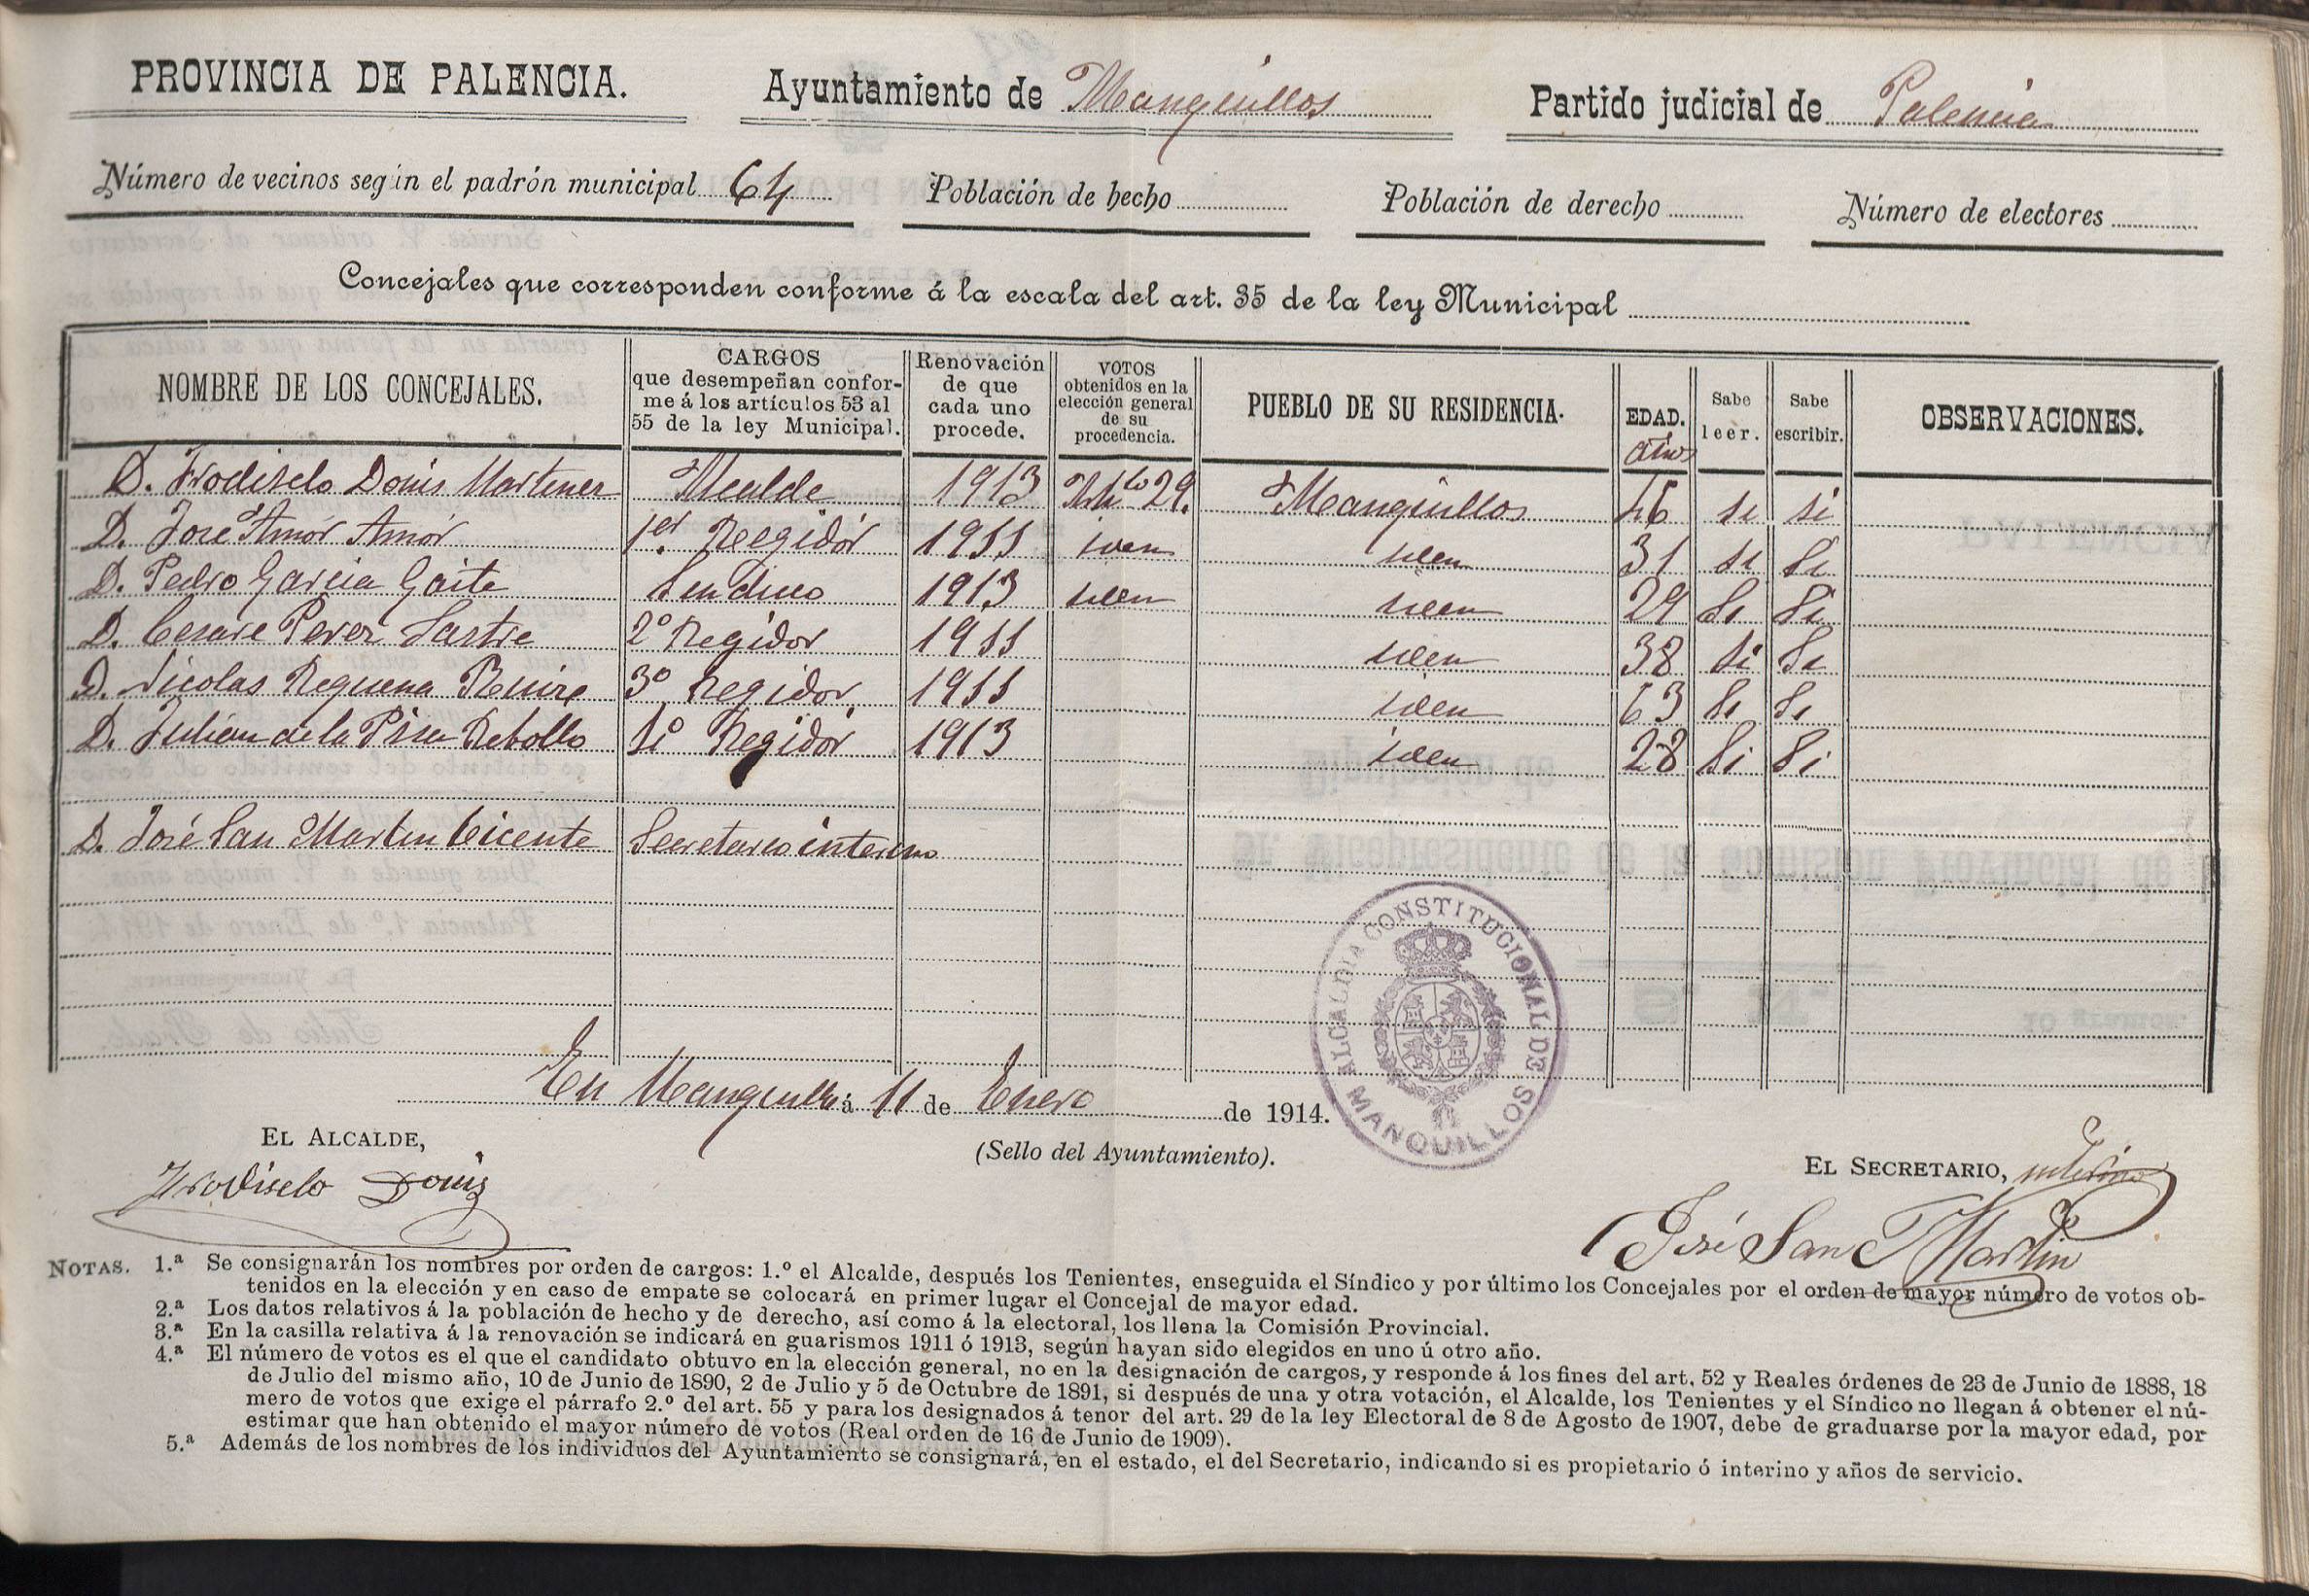 PROVINCIA DE PALENCIA. Ayuntamiento de Manquillos Partido judicial de Palencia
Número de vecinos según el padrón municipal 64 Población de hecho Población de derecho Número de electores
Concejales que corresponden conforme á la escala del art. 35 de la ley Municipal
NOMBRE DE LOS CONCEJALES. CARGOS que desempeñan confor- me á los artículos 53 al 55 de la ley Municipal. Renovación de que cada uno procede. VOTOS obtenidos en la elección general de su procedencia. PUEBLO DE SU RESIDENCIA. EDAD. años Sabe leer. Sabe escribir. OBSERVACIONES.
D. Frodiselo Donis Martinez Alcalde 1913 Arto 29. Manquillos 46 si si
D. José Amór Amór 1er Regidór 1911 iden iden 31 si Si
D. Pedro Garcia Gaite Sindico 1913 iden iden 29 Si Si
D. Cesareo Perez Sastre 2º Regidor 1911 iden 38 si Si
D. Nicolas Requena 3º Regidor 1911 iden 63 Si Si
D. Julián de la Pisa Rebollo 4º Regidór 1913 iden 28 Si Si
D. José San Martin Vicente Secretario interino
En Manquillos á 11 de Enero de 1914.
ALCALDIA CONSTITUCIONAL DE MANQUILLOS
EL ALCALDE,
(Sello del Ayuntamiento).
EL SECRETARIO, interino
Frodiselo Donis
José San Martin
NOTAS. 1.ª Se consignarán los nombres por orden de cargos: 1.º el Alcalde, después los Tenientes, enseguida el Síndico y por último los Concejales por el orden de mayor número de votos ob-
tenidos en la elección y en caso de empate se colocará en primer lugar el Concejal de mayor edad.
2.ª Los datos relativos á la población de hecho y de derecho, así como á la electoral, los llena la Comisión Provincial.
3.ª En la casilla relativa á la renovación se indicará en guarismos 1911 ó 1913, según hayan sido elegidos en uno ú otro año.
4.ª El número de votos es el que el candidato obtuvo en la elección general, no en la designación de cargos, y responde á los fines del art. 52 y Reales órdenes de 23 de Junio de 1888, 18
de Julio del mismo año, 10 de Junio de 1890, 2 de Julio y 5 de Octubre de 1891, si después de una y otra votación, el Alcalde, los Tenientes y el Síndico no llegan á obtener el nú-
mero de votos que exige el párrafo 2.º del art. 55 y para los designados á tenor del art. 29 de la ley Electoral de 8 de Agosto de 1907, debe de graduarse por la mayor edad, por
estimar que han obtenido el mayor número de votos (Real orden de 16 de Junio de 1909).
5.ª Además de los nombres de los individuos del Ayuntamiento se consignará, en el estado, el del Secretario, indicando si es propietario ó interino y años de servicio.